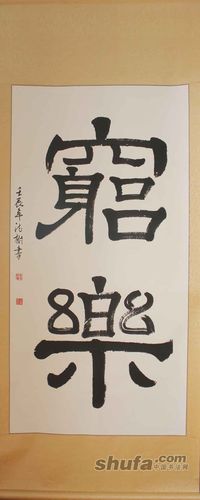 窮樂
壬辰年
书
shufa.com
中国书法网